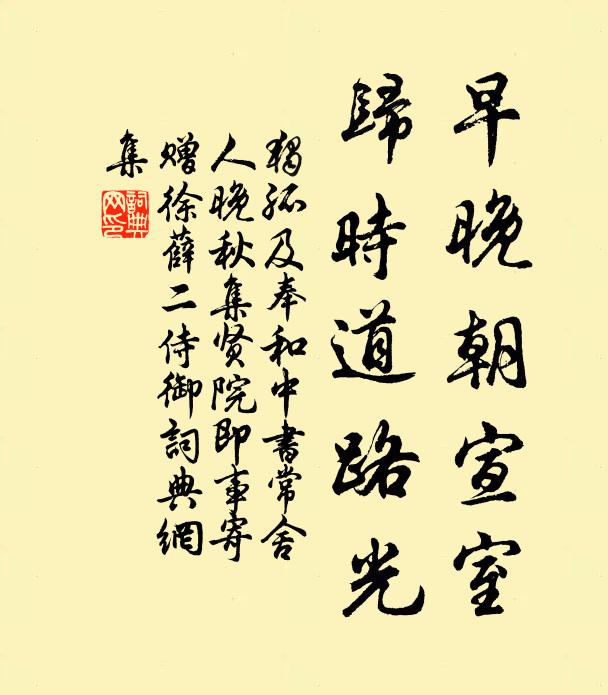 早晚朝宣室
歸時道路光
獨孤及奉和中書常舍
人晚秋集贤院即事寄
赠徐薛二侍御詞典網
集
詞典
网印